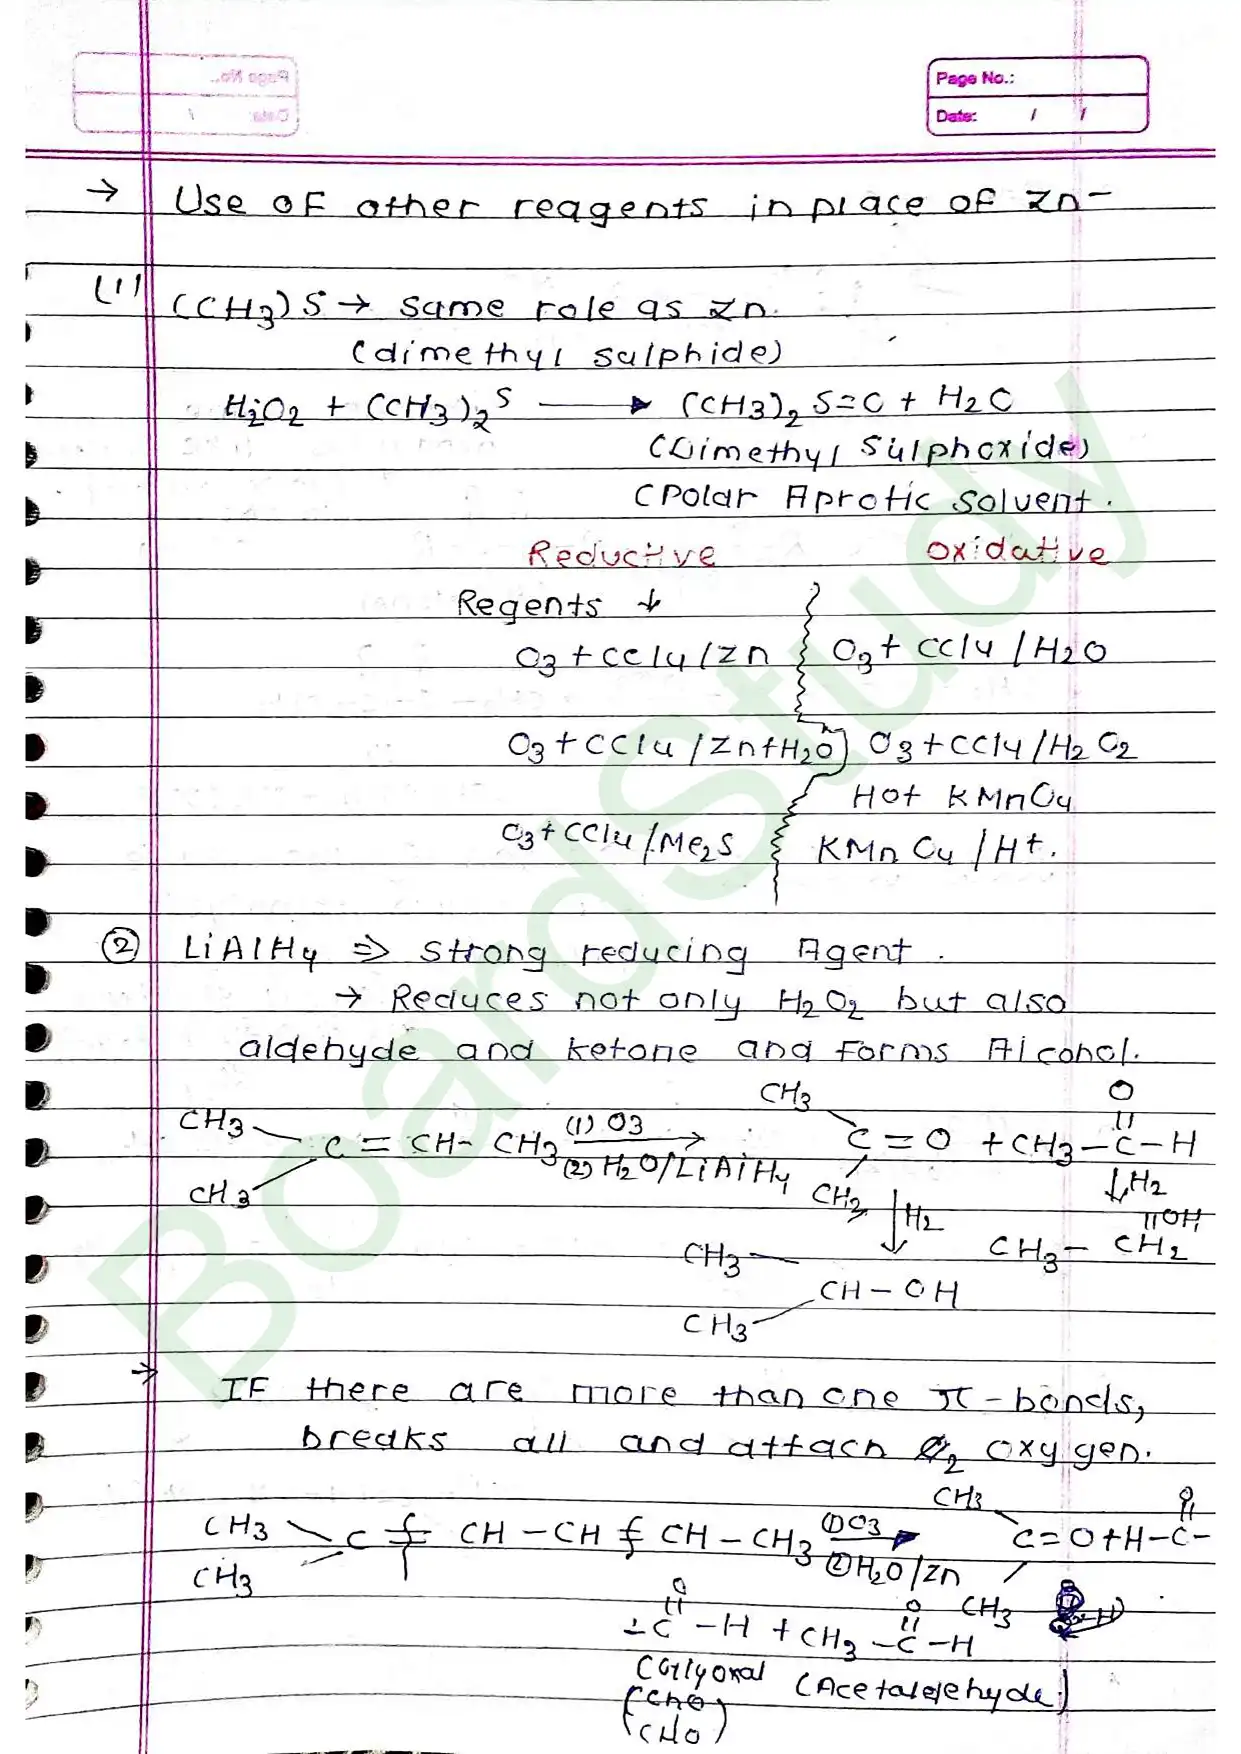 Page No.:
Date: / /
→ Use of other reagents in place of Zn-
(1) (CH3)S → same role as Zn.
(dimethyl sulphide)
H2O2 + (CH3)2S ⟶ (CH3)2 S=O + H2O
(Dimethyl Sulphoxide)
(Polar Aprotic solvent.
Reductive oxidative
Regents ↓
O3+CCl4/Zn O3+ CCl4/H2O
O3+CCl4/Zn+H2O O3+CCl4/H2O2
Hot KMnO4
O3+CCl4/Me2S KMnO4/H+.
② LiAlH4 ⇒ Strong reducing Agent.
→ Reduces not only H2O2 but also
aldehyde and ketone and forms Alcohol.
CH3 O
CH3 (1) O3
C = CH- CH3 → C = O + CH3-C-H
(2) H2O/LiAlH4
CH3 CH3 ↓H2 ↓H2
OH
CH3 CH3- CH2
CH-OH
CH3
→ IF there are more than one π-bonds,
breaks all and attach 2 oxygen.
CH3 O
CH3 C = CH-CH = CH-CH3 ①O3 → C=O+H-C-
②H2O/Zn
CH3 O O CH3
-C-H + CH3-C-H
(Glyoxal (Acetaldehyde)
(CHO
CHO)
BoardStudy